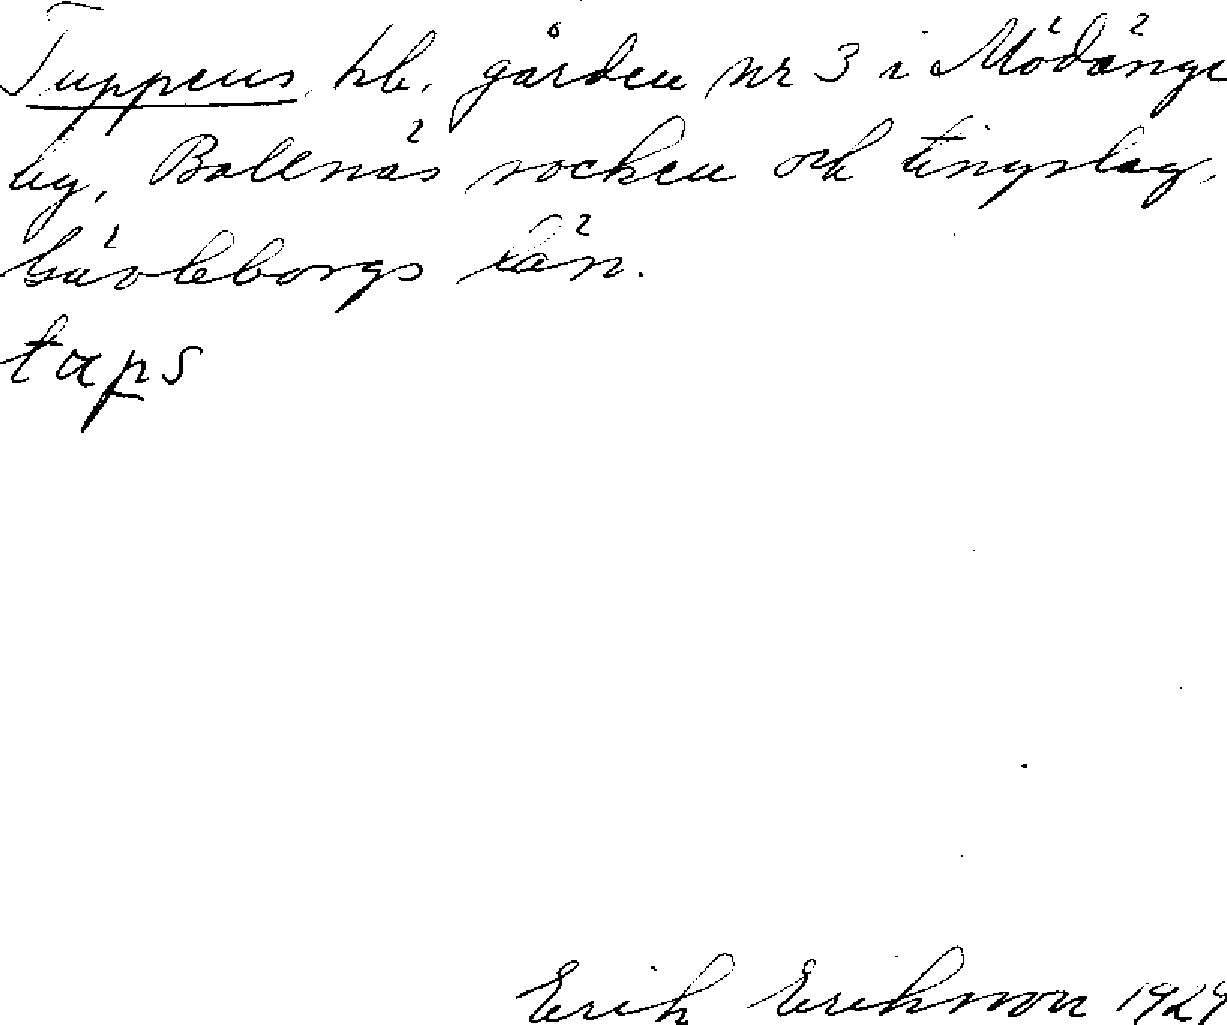 Tuppens, hb. gården nr 3 i Mödänge
by, Bollnäs socken och tingslag,
Gävleborgs län.
taps
Erik Eriksson 1929